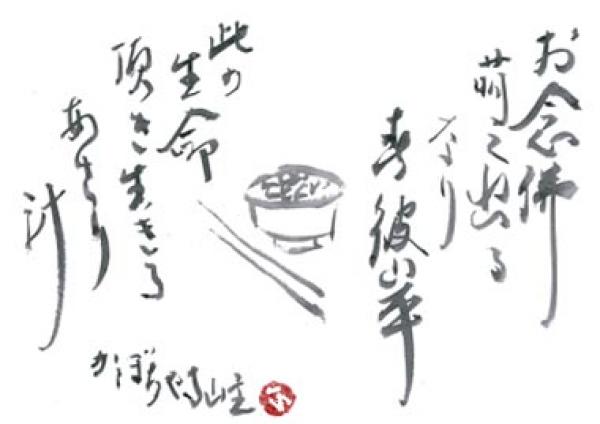 お念佛
萌え出る
なり
春彼岸
此の
生命
頂き生きる
あさり
汁
かぼちゃ寺山主